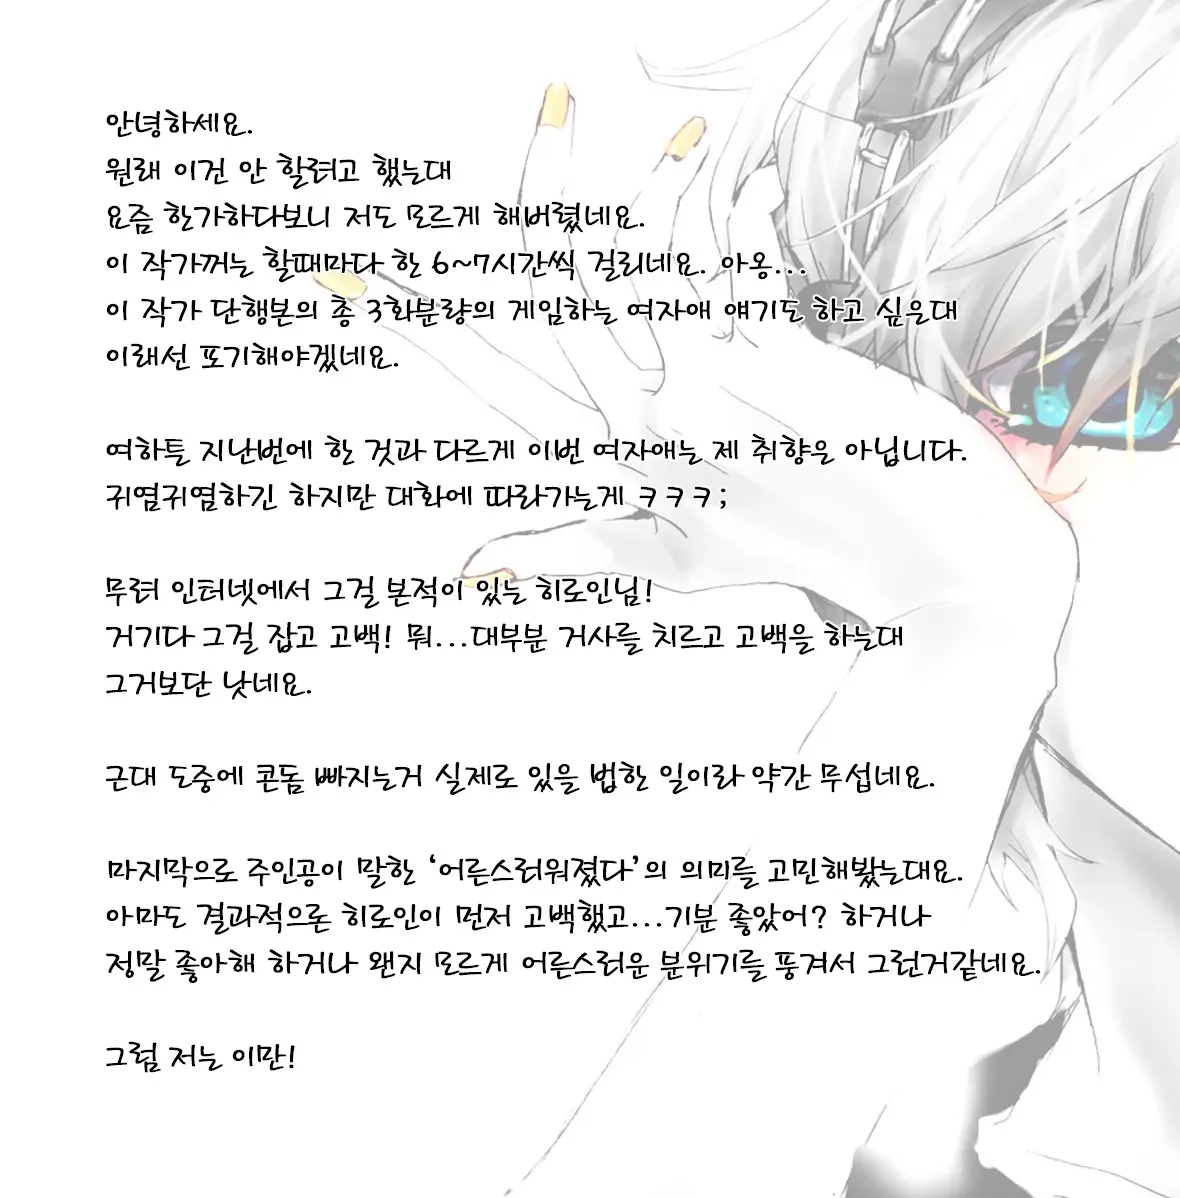 안녕하세요.
원래 이건 안 할려고 했는대
요즘 한가하다보니 저도 모르게 해버렸네요.
이 작가꺼는 할때마다 한 6~7시간씩 걸리네요. 아옹...
이 작가 단행본의 총 3화분량의 게임하는 여자애 얘기도 하고 싶은대
이래선 포기해야겠네요.
여하튼 지난번에 한 것과 다르게 이번 여자애는 제 취향은 아닙니다.
귀엽귀엽하긴 하지만 대화에 따라가는게 ㅋㅋㅋ;
무려 인터넷에서 그걸 본적이 있는 히로인님!
거기다 그걸 잡고 고백! 뭐...대부분 거사를 치르고 고백을 하는대
그거보단 낫네요.
근대 도중에 콘돔 빠지는거 실제로 있을 법한 일이라 약간 무섭네요.
마지막으로 주인공이 말한 '어른스러워졌다'의 의미를 고민해봤는대요.
아마도 결과적으론 히로인이 먼저 고백했고...기분 좋았어? 하거나
정말 좋아해 하거나 왠지 모르게 어른스러운 분위기를 풍겨서 그런거같네요.
그럼 저는 이만!